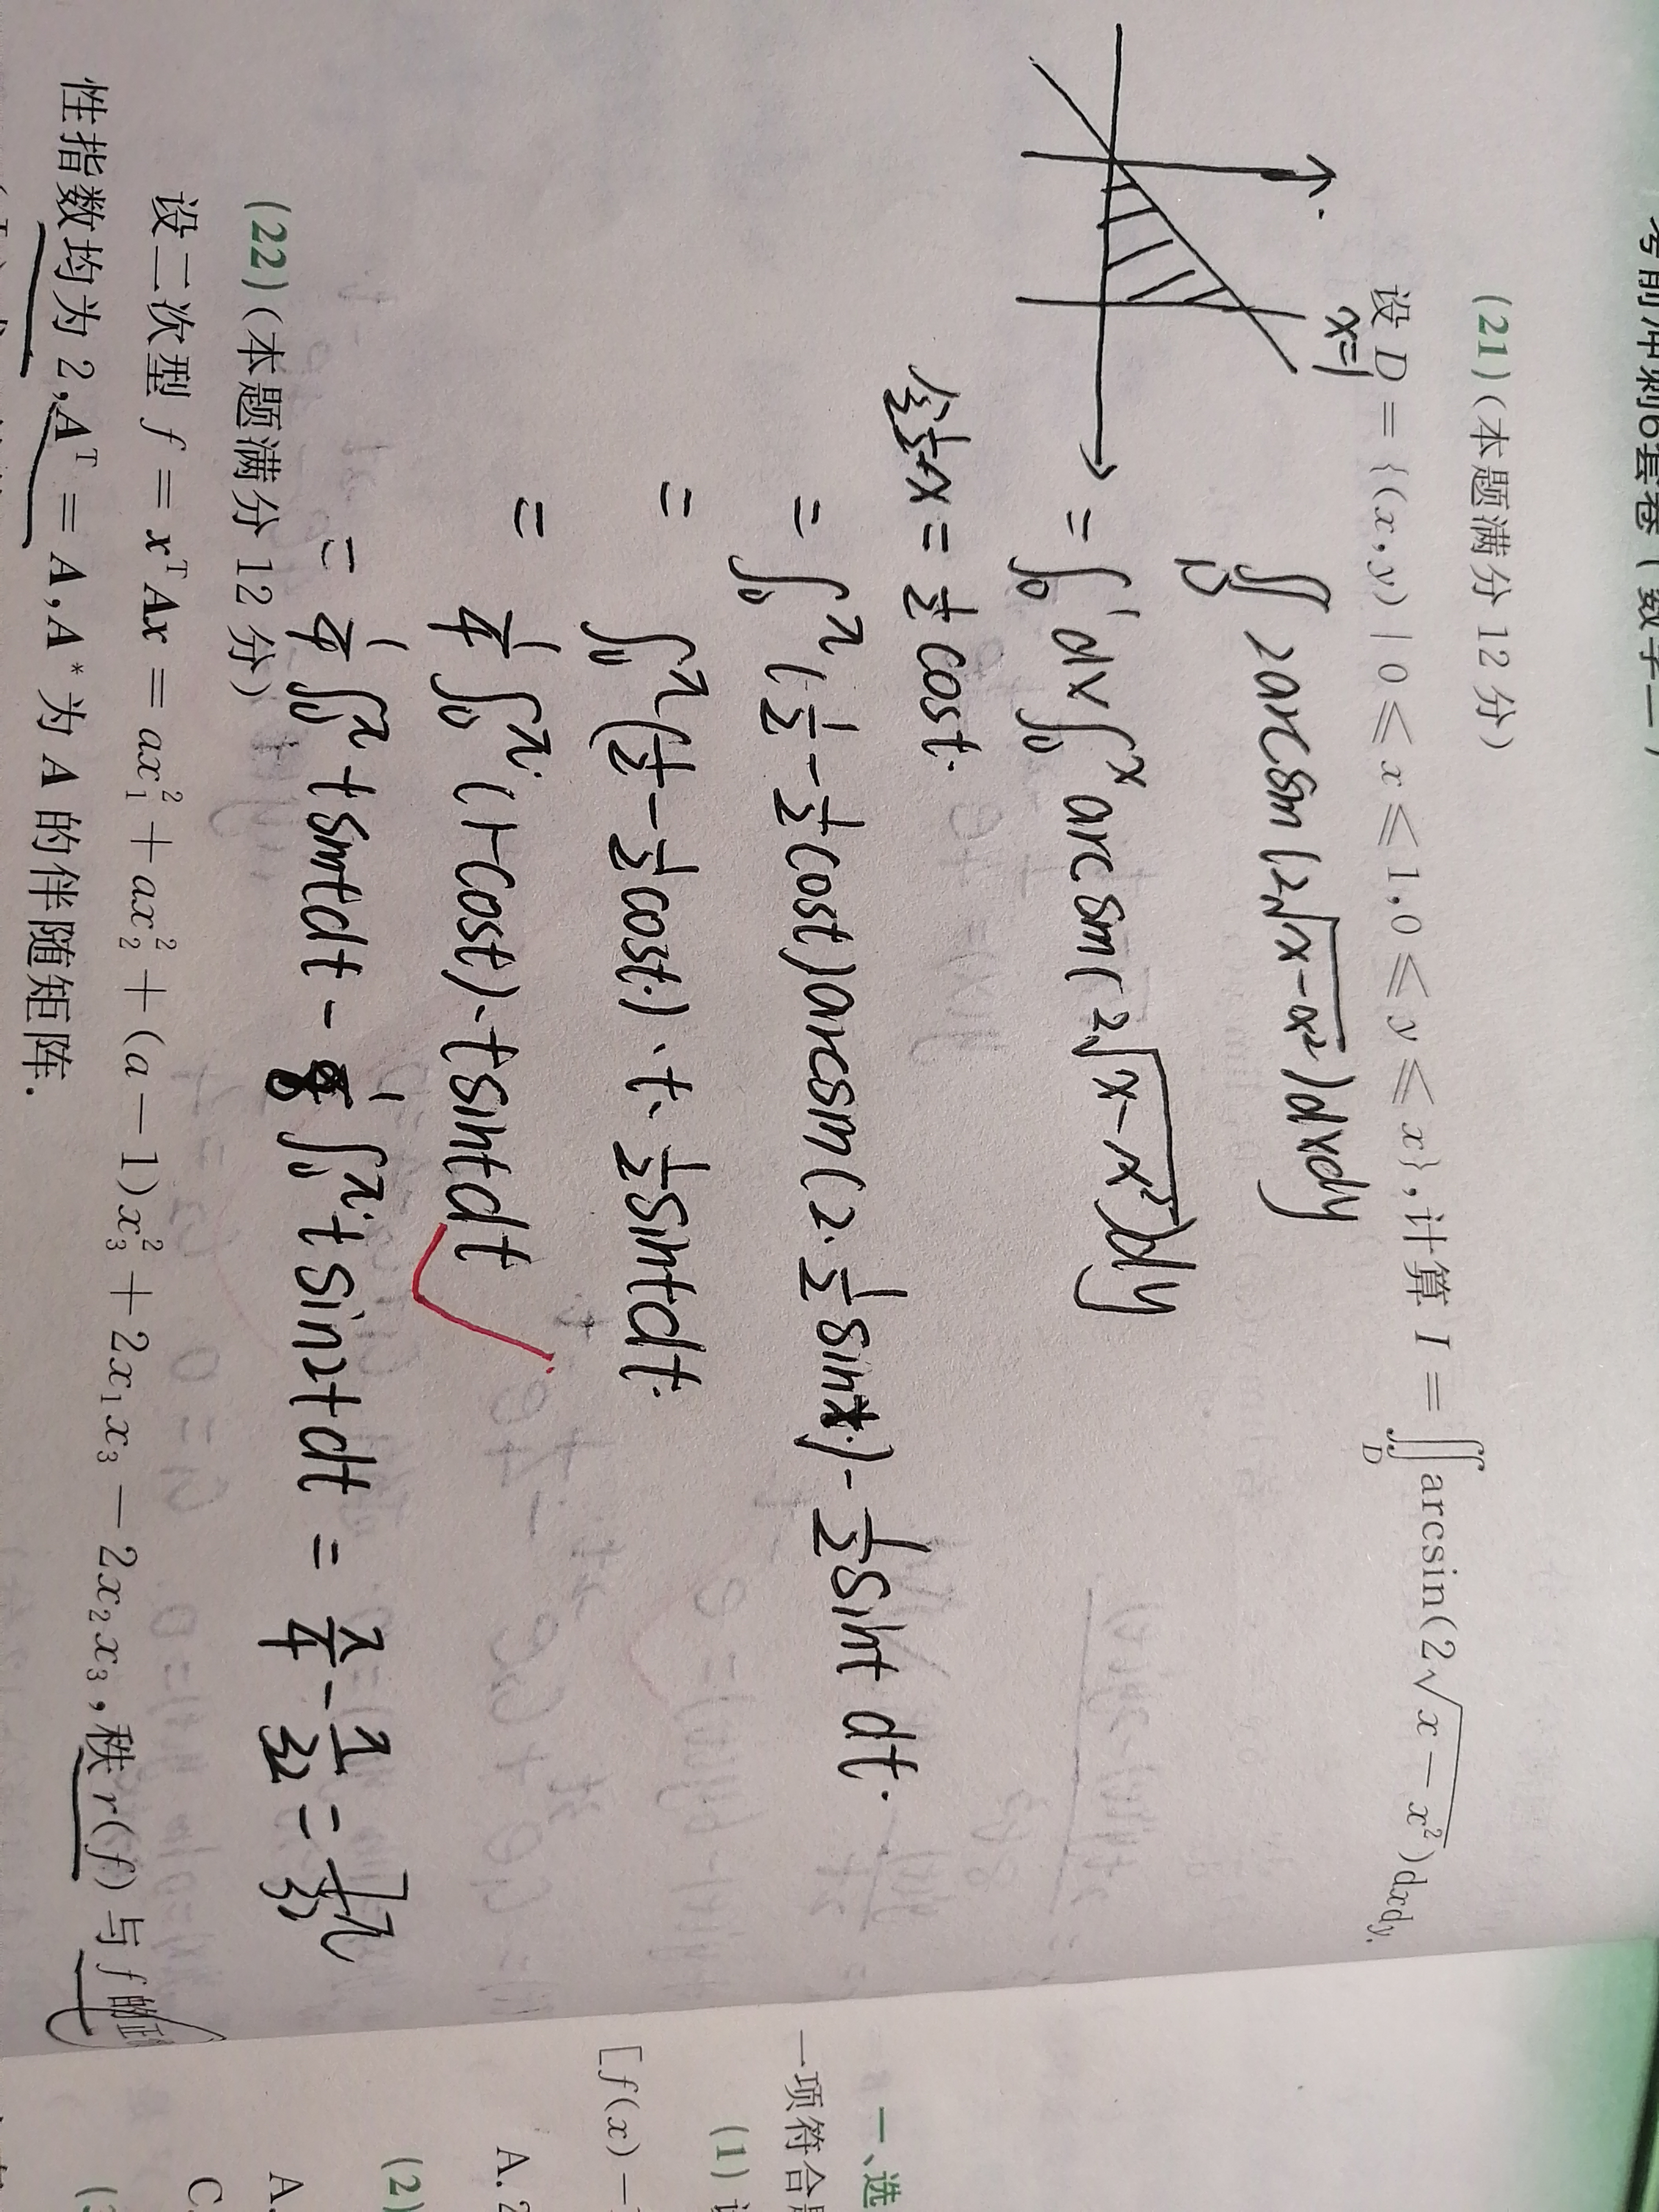 考前冲刺6套卷(数学二)
(21)(本题满分 12 分)
设 D = {(x,y) | 0 ≤ x ≤ 1, 0 ≤ y ≤ x}, 计算 I = ∬_D arcsin(2√(x − x²))dxdy.
x=1
∬_D 2arcsin(2√(x−x²))dxdy
= ∫₀¹ dx ∫₀ˣ arcsin(2√(x−x²))dy
x = ½ cost.
= ∫₀^π (½ − ½cost)arcsin(2·½sint) − ½sint dt.
= ∫₀^π (½ − ½cost.)·t·½sintdt.
= ¼∫₀^π (1−cost)·tsintdt
= ¼∫₀^π tsintdt − ⅛∫₀^π tsin2tdt =
(22)(本题满分 12 分)
设二次型 f = xᵀAx = ax₁² + ax₂² + (a − 1)x₃² + 2x₁x₃ − 2x₂x₃, 秩 r(f) 与 f 的正
性指数均为 2, Aᵀ = A, A* 为 A 的伴随矩阵.
一、选
一项符合题
(1)
[f(x) −
A. 2
(2)
A.
C.